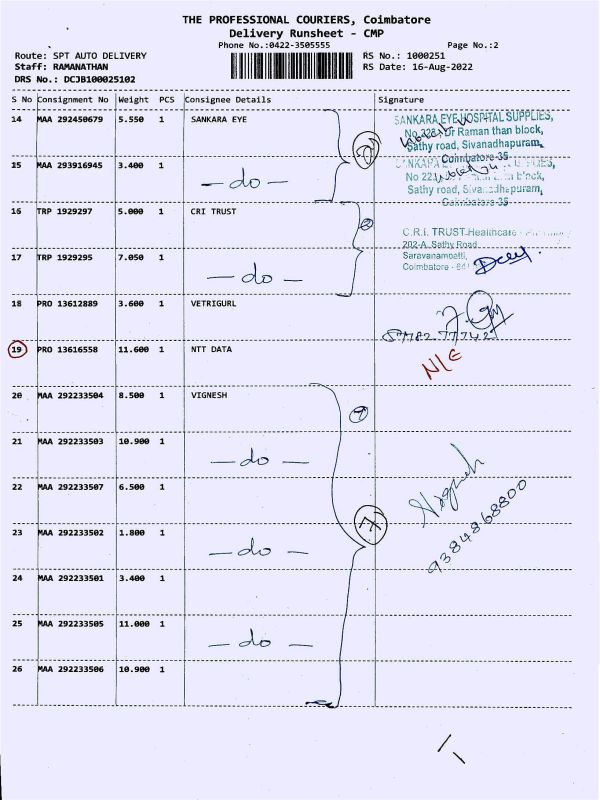 THE PROFESSIONAL COURIERS, Coimbatore
Delivery Runsheet - CMP
Phone No.:0422-3505555 Page No.:2
Route: SPT AUTO DELIVERY RS No.: 1000251
Staff: RAMANATHAN RS Date: 16-Aug-2022
DRS No.: DCJB100025102
S No Consignment No Weight PCS Consignee Details Signature
14 MAA 292450679 5.550 1 SANKARA EYE
SANKARA EYE HOSPITAL SUPPLIES,
Raman than block,
Sathy road, Sivanadhapuram,
Coimbatore-35
15 MAA 293916945 3.400 1
- do -
Sathy road,
Coimbatore-35
16 TRP 1929297 5.000 1 CRI TRUST
C.R.I. TRUST-Healthcare
202-A, Sathy Road
17 TRP 1929295 7.050 1 Saravanampatti,
- do - Coimbatore
18 PRO 13612889 3.600 1 VETRIGURL
19 PRO 13616558 11.600 1 NTT DATA
N/E
20 MAA 292233504 8.500 1 VIGNESH
7
21 MAA 292233503 10.900 1
- do -
22 MAA 292233507 6.500 1
Vignesh
9384868800
7
23 MAA 292233502 1.800 1
- do -
24 MAA 292233501 3.400 1
25 MAA 292233505 11.000 1
- do -
26 MAA 292233506 10.900 1